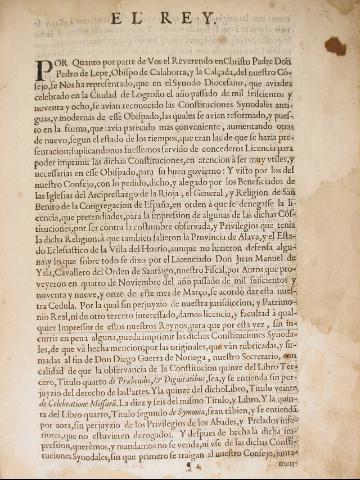 EL REY.
POR Quanto por parte de Vos el Reverendo en Christo Padre Don
Pedro de Lepe, Obispo de Calahorra, y la Calçada, del nuestro Có-
sejo, se Nos ha representado, que en el Synodo Diocesano, que aviades
celebrado en la Ciudad de Logroño el año passado de mil seiscientos y
noventa y ocho, se avian reconocido las Constituciones Synodales anti-
guas, y modernas de esse Obispado, las quales se avian reformado, y pues-
to en la forma, que avia parecido mas conveniente, aumentando otras
de nuevo, segun el estado de los tiempos, que eran las de que se hazia pre-
sentacion, suplicandonos fuessemos servido de concederos Licencia para
poder imprimir las dichas Constituciones, en atencion à ser muy vtiles, y
necessarias en esse Obispado, para su buen govierno: Y visto por los del
nuestro Consejo, con lo pedido, dicho, y alegado por los Beneficiados de
las Iglesias del Arciprestazgo de la Rioja, el General, y Religion de San
Benito de la Congregacion de España, en orden à que se denegasse la li-
cencia, que pretendiades, para la impression de algunas de las dichas Cós-
tituciones, por ser contra la costumbre observada, y Privilegios que tenia
la dicha Religion à que tambien salieron la Provincia de Alava, y el Esta-
do Eclesiastico de la Villa del Horrio, aunque no hizieron defensa algu-
na, y lo que sobre todo se dixo por el Licenciado Don Juan Manuel de
Ysla, Cavallero del Orden de Santiago, nuestro Fiscal, por Autos que pro-
veyeron en quatro de Noviembre del año passado de mil seiscientos y
noventa y nueve, y onze de este mes de Março, se acordó dar esta nues-
tra Cedula. Por la qual sin perjuyzio de nuestra jurisdiccion, y Patrimo-
nio Real, ni de otro tercero interessado, damos licencia, y facultad à qual-
quier Impressor de estos nuestros Reynos, para que por esta vez, sin in-
currir en pena alguna, pueda imprimir las dichas Constituciones Synoda-
les, de que và hecha mencion, por las originales, que ván rubricadas, y fir-
madas al fin de Don Diego Guerra de Noriega, nuestro Secretario, con
calidad de que la observancia de la Constitucion quinze del Libro Ter-
cero, Titulo quarto de Præbendis, & Dignitatibus, sea, y se entienda sin per-
juyzio del derecho de las Partes. Y la quinze del dicho Libro, Titulo veinte
de Celebratione Missarū. La diez y seis del mismo Titulo, y Libro. Y la quin-
ta del Libro quarto, Titulo segundo de Symonia, sean tābien, y se entienda
por aora, sin perjuyzio de los Privilegios de los Abades, y Prelados infe-
riores, que no estuvieren derogados. Y despues de hecha la dicha im-
pression, queremos, y mandamos no se venda, ni vse de las dichas Consti-
tuciones Synodales, sin que primero se traigan al nuestro Consejo, junta-
men-